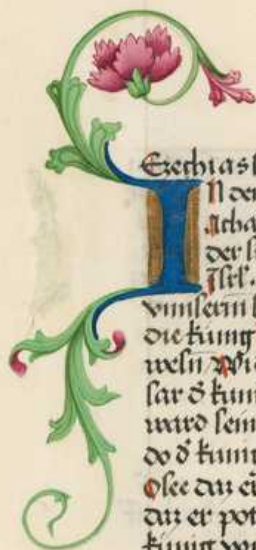 Ezechias
In der
Acha
der s
Isrl.
vnnserm
die kunig
weln Wie
sar d̊ kun
ward sein
do d̊ kuni
Osee daz er
daz er pot
kunig